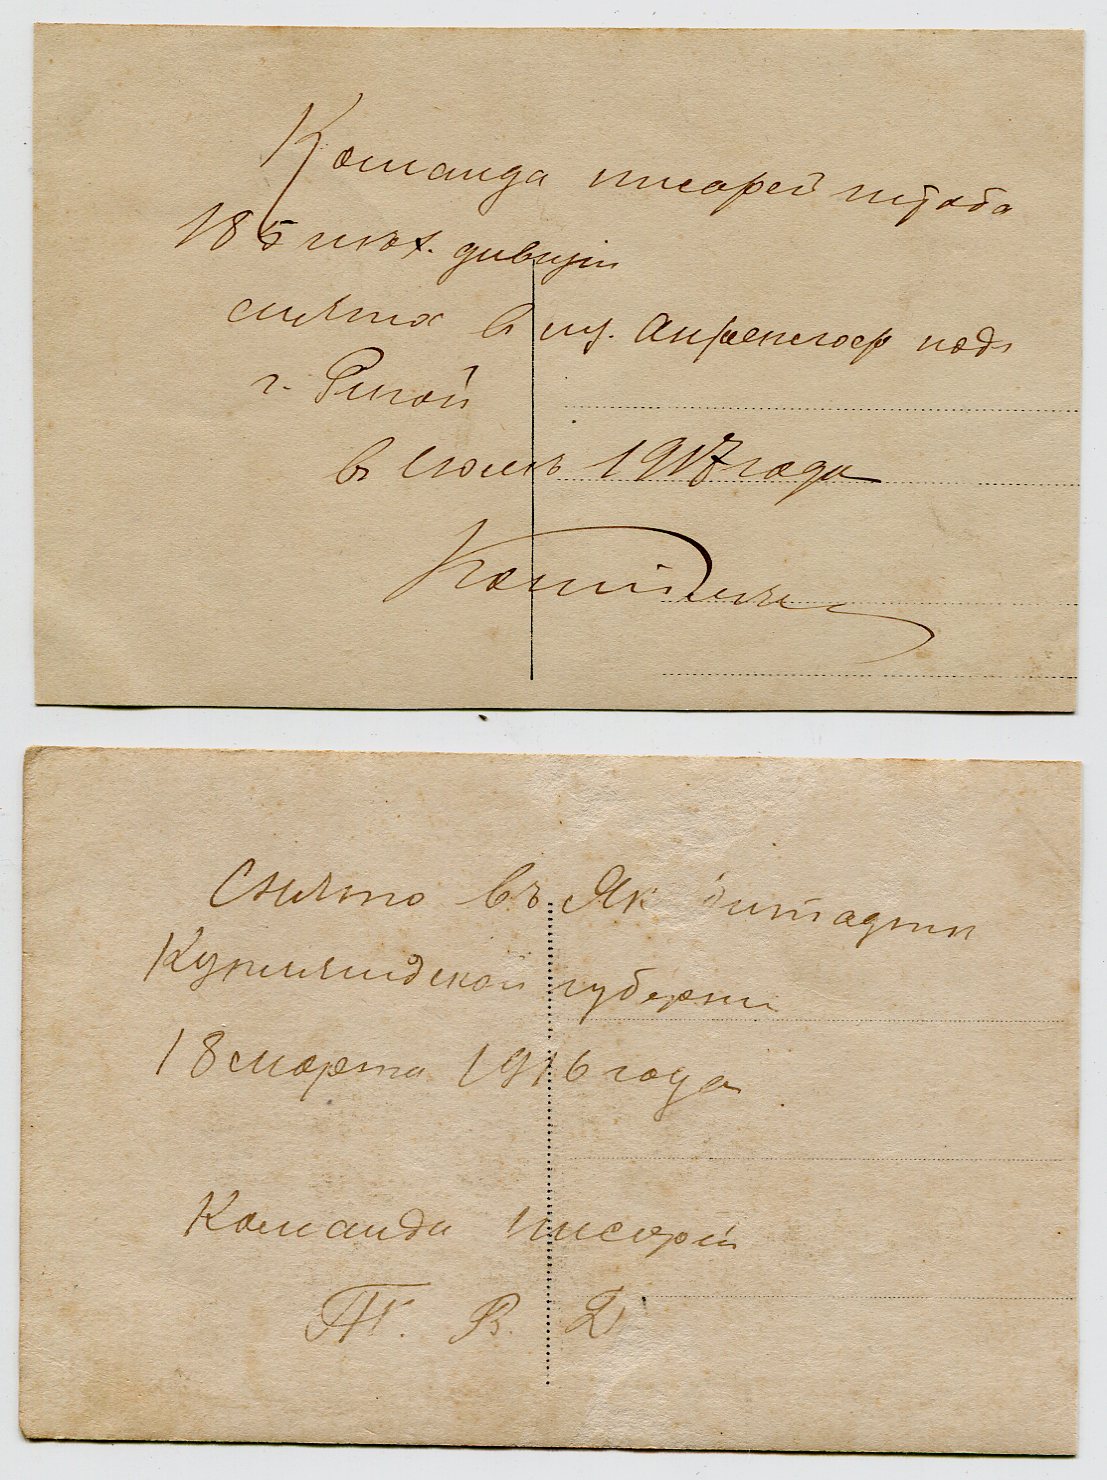 Команда писарей штаба
185 пех. дивизіи
снята в им. подъ
г. Ригой
въ 1917 года
Снято въ Як штадти
Курляндской губерни
18 марта 1916 года
Команда писарей